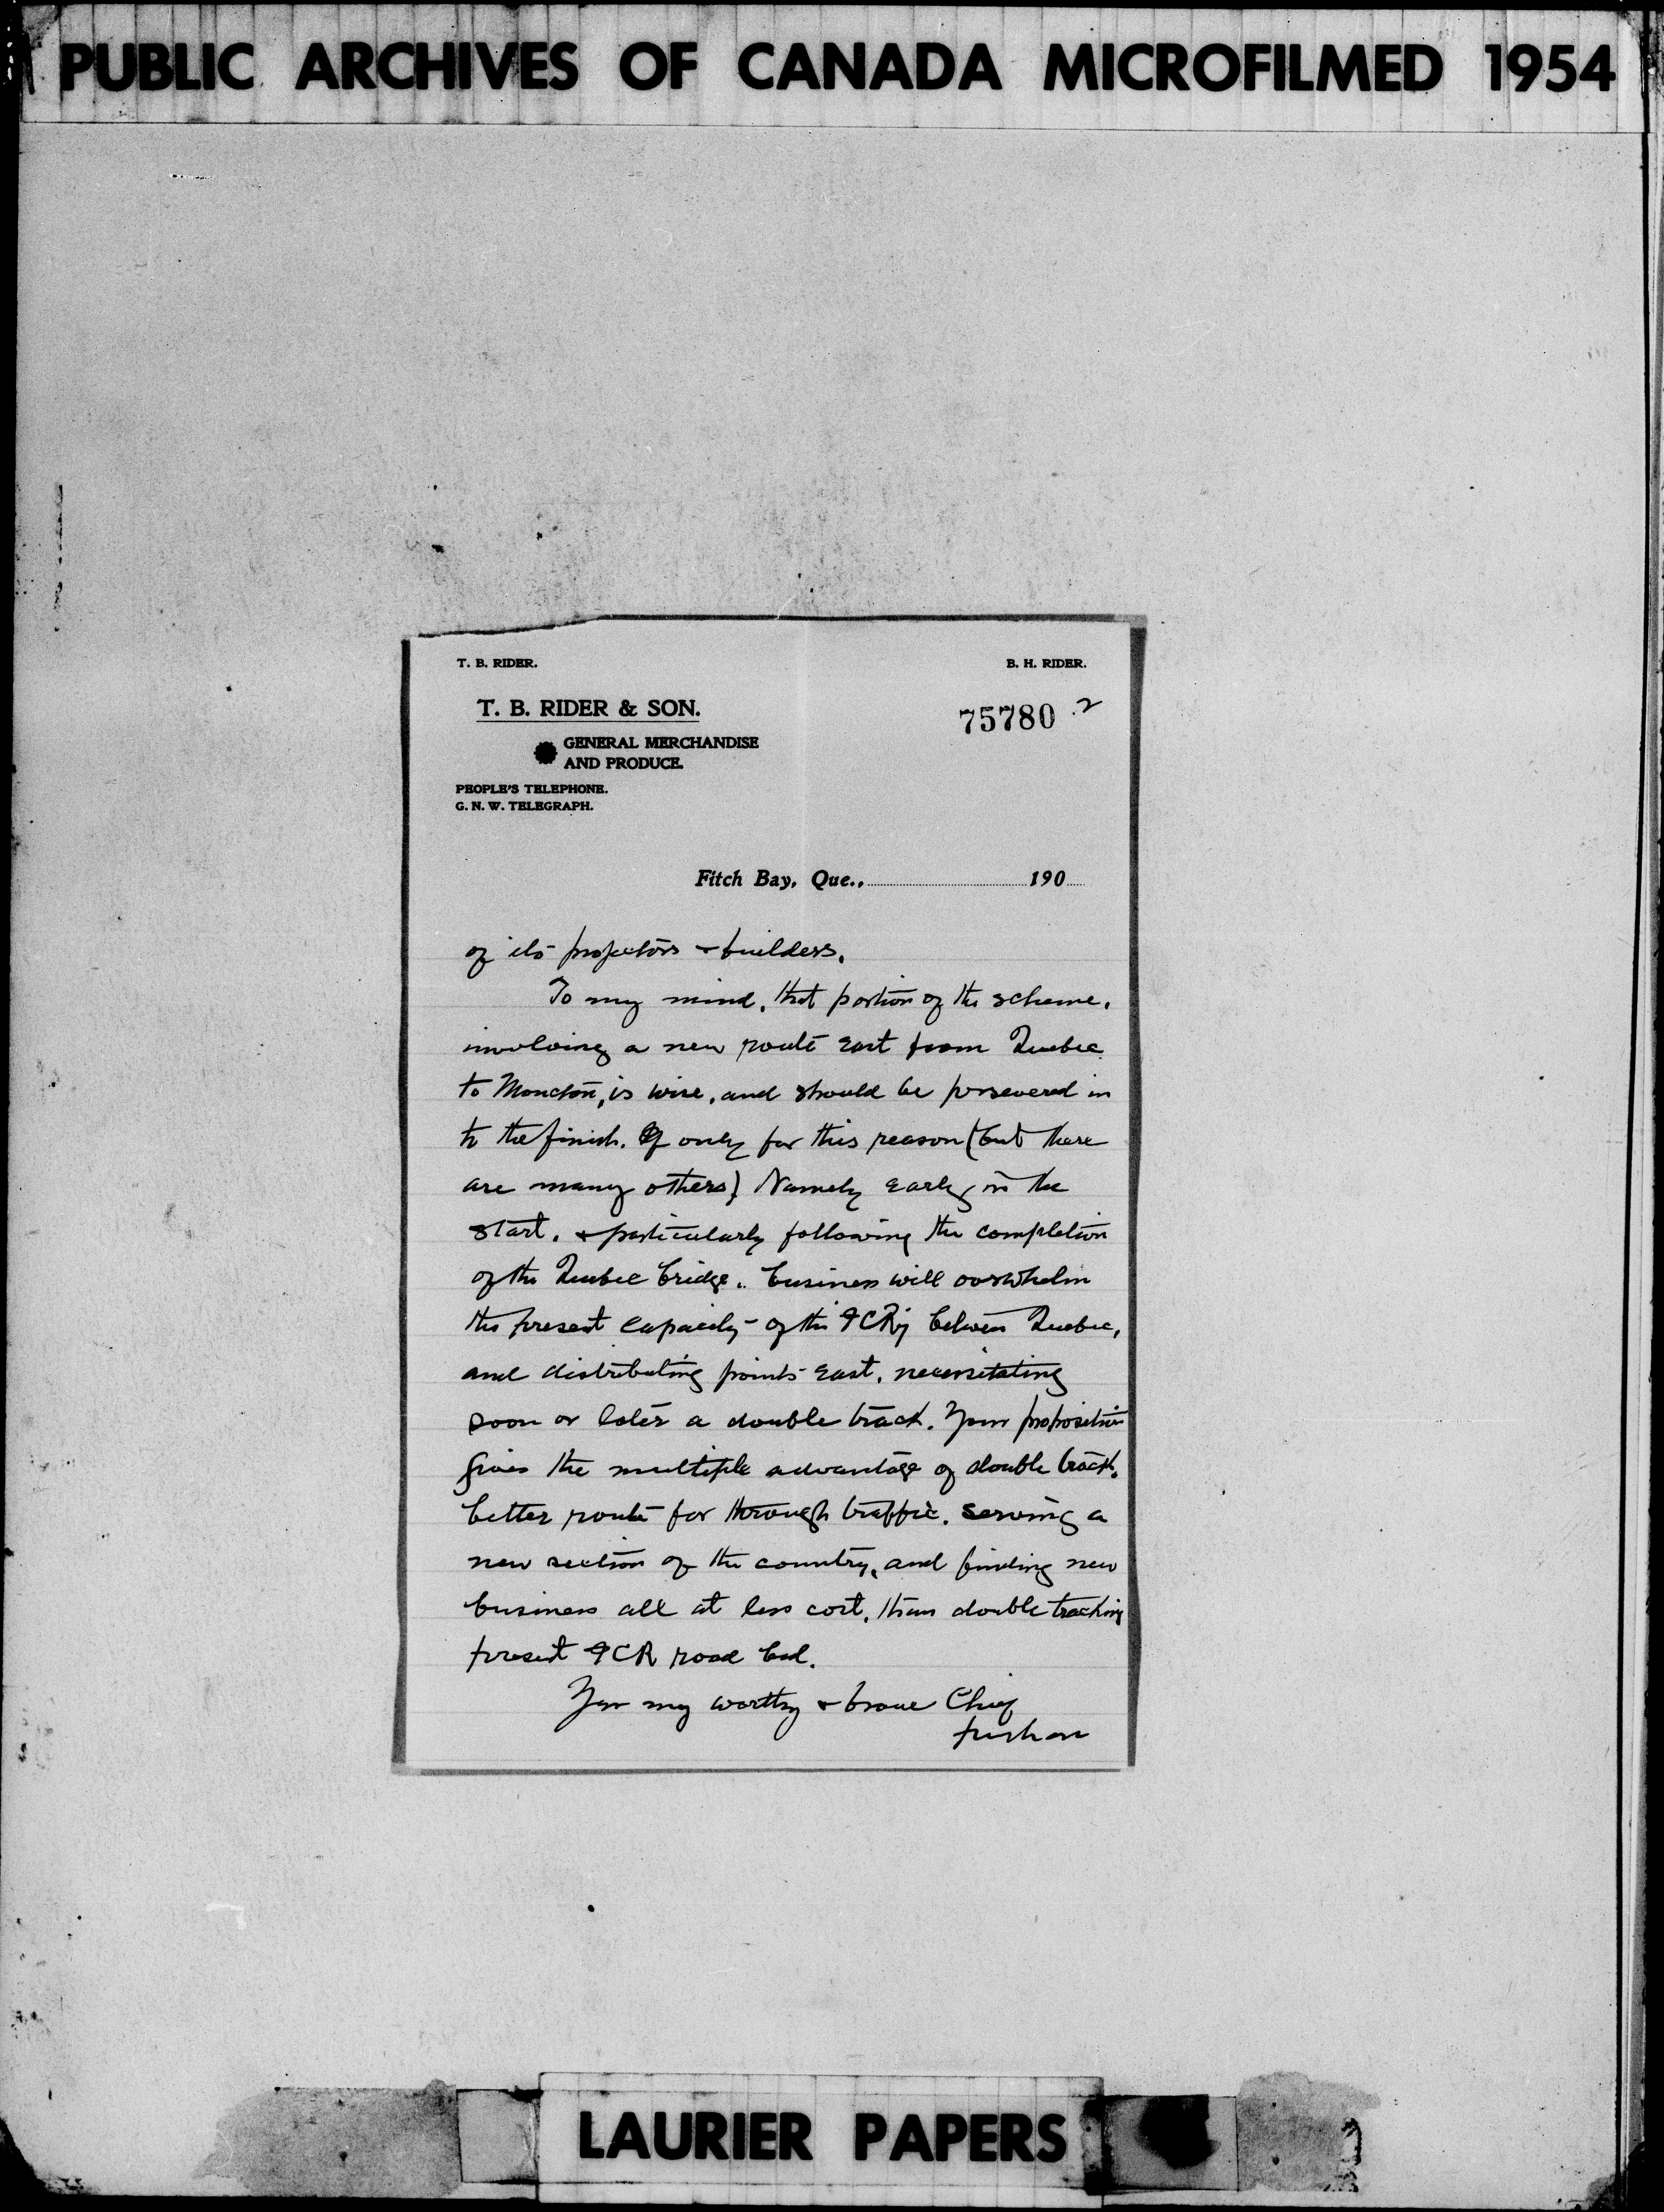 PUBLIC ARCHIVES OF CANADA MICROFILMED 1954
T. B. RIDER.
B. H. RIDER.
T. B. RIDER & SON.
75780 2
GENERAL MERCHANDISE
AND PRODUCE.
PEOPLE'S TELEPHONE.
G. N. W. TELEGRAPH.
Fitch Bay, Que., 190
of its projectors & builders.
To my mind, that portion of the scheme,
involving a new route east from Quebec
to Moncton, is wise, and should be persevered in
to the finish. If only for this reason (but there
are many others) Namely early in the
start, & particularly following the completion
of the Quebec bridge, business will overwhelm
the present capacity of the ICRy between Quebec,
and distributing points east, necessitating
soon or later a double track. Your proposition
gives the multiple advantage of double track,
better route for through traffic, serving a
new section of the country, and finding new
business all at less cost, than double tracking
present ICR road bed.
my worthy & brave Chief
push on
LAURIER PAPERS